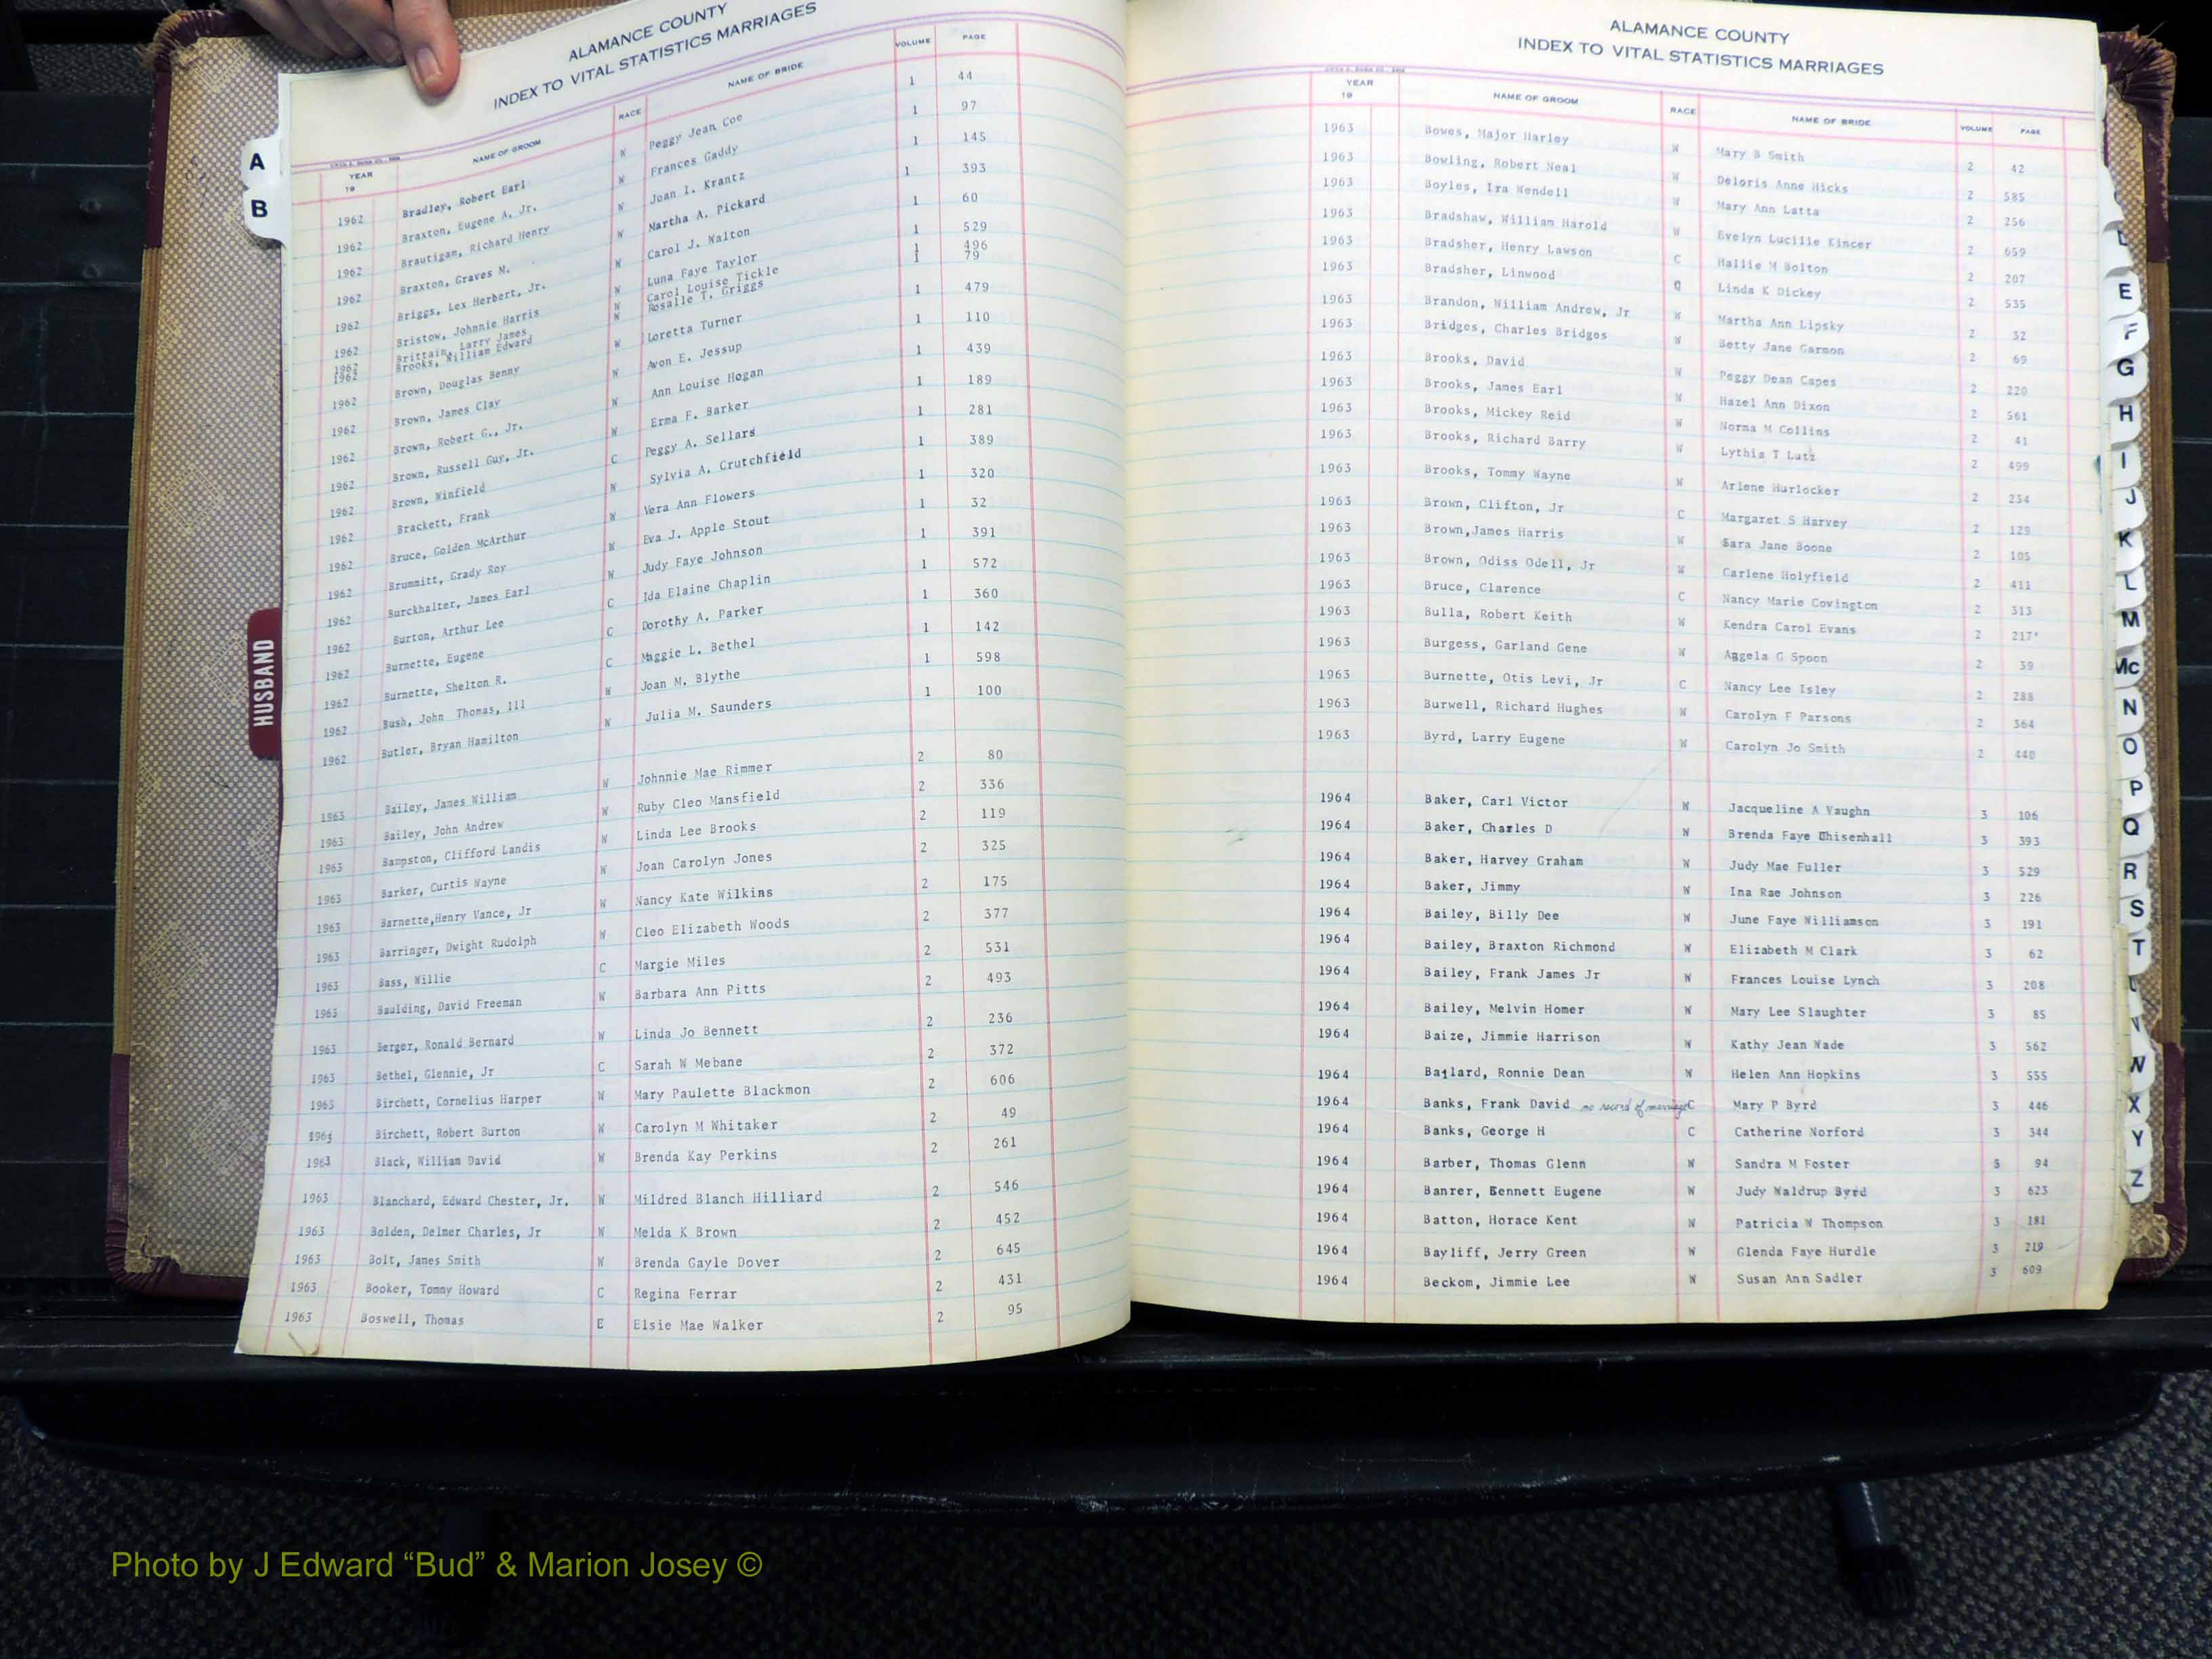 ALAMANCE COUNTY
INDEX TO VITAL STATISTICS MARRIAGES
YEAR 19 NAME OF GROOM RACE NAME OF BRIDE VOLUME PAGE
1962 Bradley, Robert Earl W Peggy Jean Coe 1 44
1962 Braxton, Eugene A. Jr. W Frances Gaddy 1 97
1962 Brautigan, Richard Henry W Joan I. Krantz 1 145
1962 Braxton, Graves M. W Martha A. Pickard 1 393
1962 Briggs, Lex Herbert, Jr. W Carol J. Walton 1 60
1962 Bristow, Johnnie Harris W Luna Faye Taylor 1 529
1962 Brittain, Larry James W Carol Louise Tickle 1 496
1962 Brooks, William Edward W Rosalie T. Griggs 1 79
1962 Brown, Douglas Benny W Loretta Turner 1 479
1962 Brown, James Clay W Avon E. Jessup 1 110
1962 Brown, Robert G., Jr. W Ann Louise Hogan 1 439
1962 Brown, Russell Guy, Jr. W Erma F. Barker 1 189
1962 Brown, Winfield C Peggy A. Sellars 1 281
1962 Brackett, Frank W Sylvia A. Crutchfield 1 389
1962 Bruce, Golden McArthur W Vera Ann Flowers 1 320
1962 Brummitt, Grady Roy W Eva J. Apple Stout 1 32
1962 Burckhalter, James Earl W Judy Faye Johnson 1 391
1962 Burton, Arthur Lee C Ida Elaine Chaplin 1 572
1962 Burnette, Eugene C Dorothy A. Parker 1 360
1962 Burnette, Shelton R. C Maggie L. Bethel 1 142
1962 Bush, John Thomas, 111 W Joan M. Blythe 1 598
1962 Butler, Bryan Hamilton W Julia M. Saunders 1 100
1963 Bailey, James William W Johnnie Mae Rimmer 2 80
1963 Bailey, John Andrew W Ruby Cleo Mansfield 2 336
1963 Bampston, Clifford Landis W Linda Lee Brooks 2 119
1963 Barker, Curtis Wayne W Joan Carolyn Jones 2 325
1963 Barnette,Henry Vance, Jr W Nancy Kate Wilkins 2 175
1963 Barringer, Dwight Rudolph W Cleo Elizabeth Woods 2 377
1963 Bass, Willie C Margie Miles 2 531
1963 Baulding, David Freeman W Barbara Ann Pitts 2 493
1963 Berger, Ronald Bernard W Linda Jo Bennett 2 236
1963 Bethel, Glennie, Jr C Sarah W Mebane 2 372
1963 Birchett, Cornelius Harper W Mary Paulette Blackmon 2 606
1963 Birchett, Robert Burton W Carolyn M Whitaker 2 49
1963 Black, William David W Brenda Kay Perkins 2 261
1963 Blanchard, Edward Chester, Jr. W Mildred Blanch Hilliard 2 546
1963 Bolden, Delmer Charles, Jr W Melda K Brown 2 452
1963 Bolt, James Smith W Brenda Gayle Dover 2 645
1963 Booker, Tommy Howard C Regina Ferrar 2 431
1963 Boswell, Thomas E Elsie Mae Walker 2 95
A
B
HUSBAND
ALAMANCE COUNTY
INDEX TO VITAL STATISTICS MARRIAGES
YEAR 19 NAME OF GROOM RACE NAME OF BRIDE VOLUME PAGE
1963 Bowes, Major Harley W Mary B Smith 2 42
1963 Bowling, Robert Neal W Deloris Anne Hicks 2 585
1963 Boyles, Ira Wendell W Mary Ann Latta 2 256
1963 Bradshaw, William Harold W Evelyn Lucille Kincer 2 659
1963 Bradsher, Henry Lawson C Hallie M Bolton 2 207
1963 Bradsher, Linwood Linda K Dickey 2 535
1963 Brandon, William Andrew, Jr W Martha Ann Lipsky 2 32
1963 Bridges, Charles Bridges W Betty Jane Garmon 2 69
1963 Brooks, David W Peggy Dean Capes 2 220
1963 Brooks, James Earl W Hazel Ann Dixon 2 561
1963 Brooks, Mickey Reid W Norma M Collins 2 41
1963 Brooks, Richard Barry W Lythia T Lutz 2 499
1963 Brooks, Tommy Wayne W Arlene Hurlocker 2 234
1963 Brown, Clifton, Jr C Margaret S Harvey 2 129
1963 Brown,James Harris W Sara Jane Boone 2 105
1963 Brown, Odiss Odell, Jr W Carlene Holyfield 2 411
1963 Bruce, Clarence C Nancy Marie Covington 2 313
1963 Bulla, Robert Keith W Kendra Carol Evans 2 217'
1963 Burgess, Garland Gene W Angela G Spoon 2 39
1963 Burnette, Otis Levi, Jr C Nancy Lee Isley 2 288
1963 Burwell, Richard Hughes W Carolyn F Parsons 2 364
1963 Byrd, Larry Eugene W Carolyn Jo Smith 2 440
1964 Baker, Carl Victor W Jacqueline A Vaughn 3 106
1964 Baker, Charles D W Brenda Faye Whisenhall 3 393
1964 Baker, Harvey Graham W Judy Mae Fuller 3 529
1964 Baker, Jimmy W Ina Rae Johnson 3 226
1964 Bailey, Billy Dee W June Faye Williamson 3 191
1964 Bailey, Braxton Richmond W Elizabeth M Clark 3 62
1964 Bailey, Frank James Jr W Frances Louise Lynch 3 208
1964 Bailey, Melvin Homer W Mary Lee Slaughter 3 85
1964 Baize, Jimmie Harrison W Kathy Jean Wade 3 562
1964 Ballard, Ronnie Dean W Helen Ann Hopkins 3 555
1964 Banks, Frank David no record of marriage C Mary P Byrd 3 446
1964 Banks, George H C Catherine Norford 3 344
1964 Barber, Thomas Glenn W Sandra M Foster 3 94
1964 Banrer, Bennett Eugene W Judy Waldrup Byrd 3 623
1964 Batton, Horace Kent W Patricia W Thompson 3 181
1964 Bayliff, Jerry Green W Glenda Faye Hurdle 3 219
1964 Beckom, Jimmie Lee W Susan Ann Sadler 3 609
E
F
G
H
I
J
K
L
M
Mc
N
O
P
Q
R
S
T
W
X
Y
Z
Photo by J Edward “Bud” & Marion Josey ©